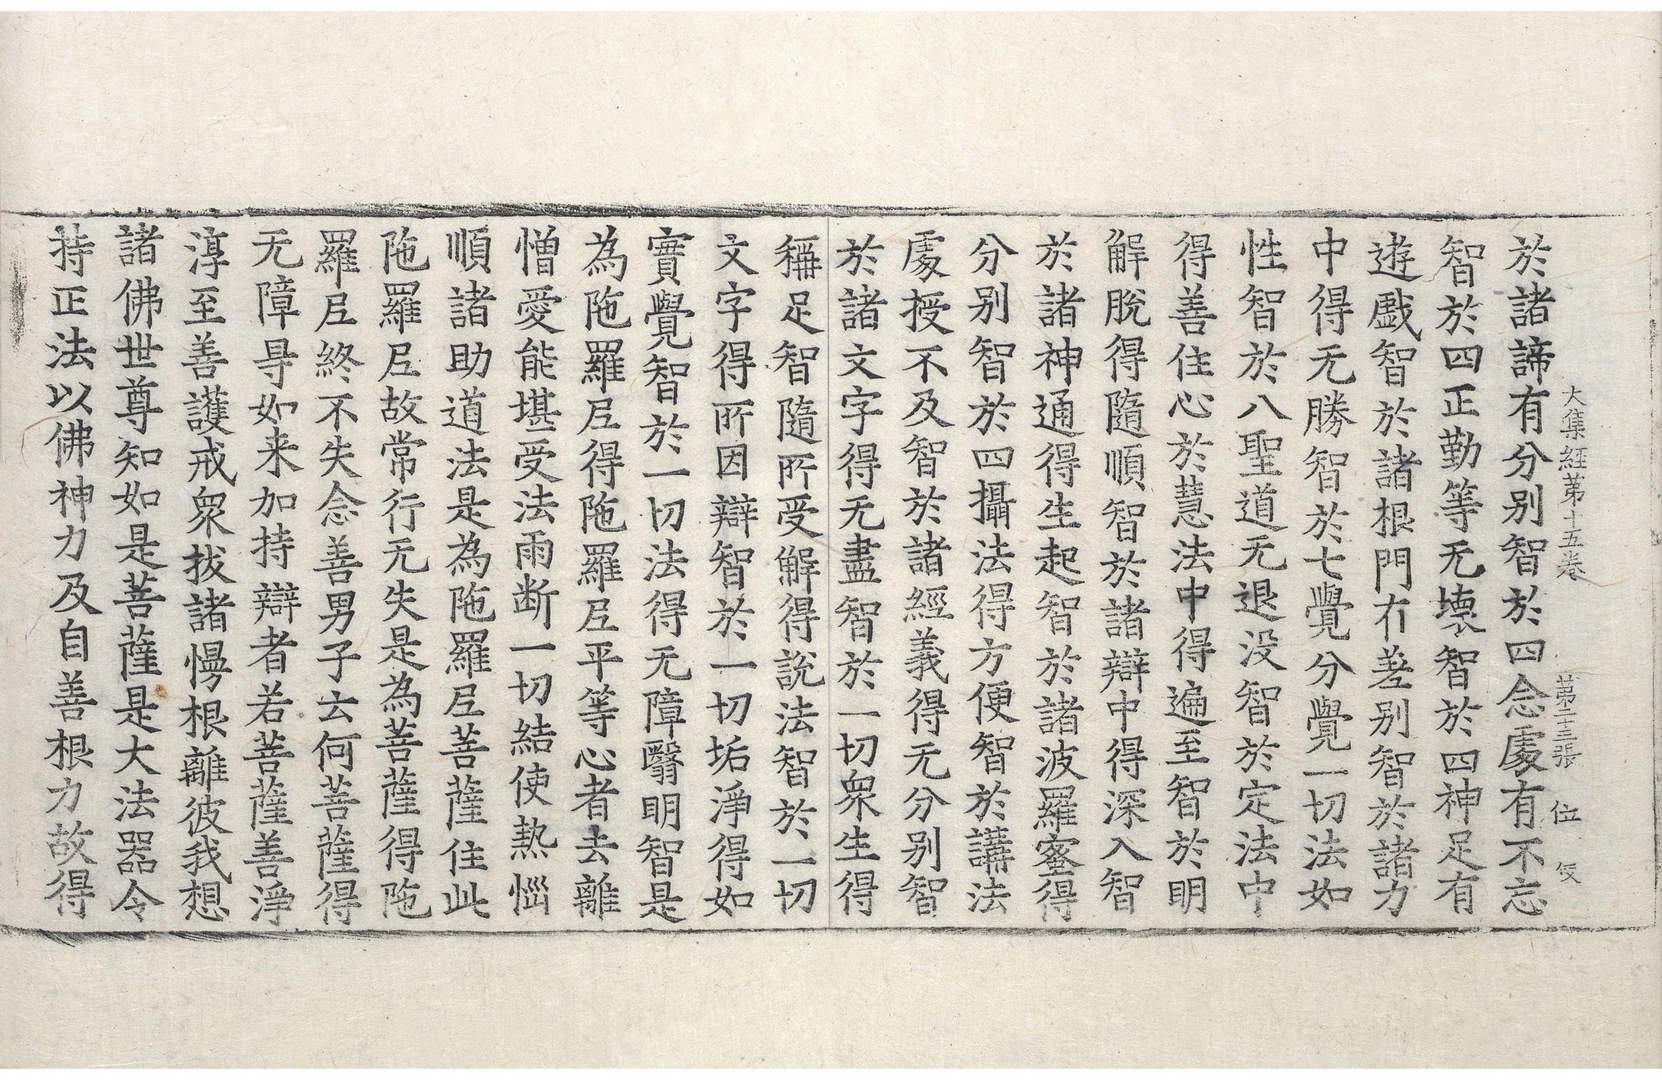 大集経苐十五卷　苐二十三張　位
於諸諦有分别智於四念處有不忘
智於四正勤等无壊智於四神足有
遊戯智於諸根門有差别智於諸力
中得无勝智於七覺分覺一切法如
性智於八聖道无退没智於定法中
得善住心於慧法中得遍至智於明
解脫得隨順智於諸辯中得深入智
於諸神通得生起智於諸波羅蜜得
分别智於四攝法得方便智於講法
處授不及智於諸經義得无分别智
於諸文字得无盡智於一切衆生得
稱足智隨所受解得說法智於一切
文字得所因辯智於一切垢淨得如
實覺智於一切法得无障翳明智是
為陁羅尼得陁羅尼平等心者去離
憎愛能堪受法雨断一切結使熱惱
順諸助道法是為陁羅尼菩薩住此
陁羅尼故常行无失是為菩薩得陁
羅尼終不失念善男子云何菩薩得
无障㝵如来加持辯者若菩薩善淨
淳至善護戒衆拔諸慢根離彼我想
諸佛世尊知如是菩薩是大法器令
持正法以佛神力及自善根力故得